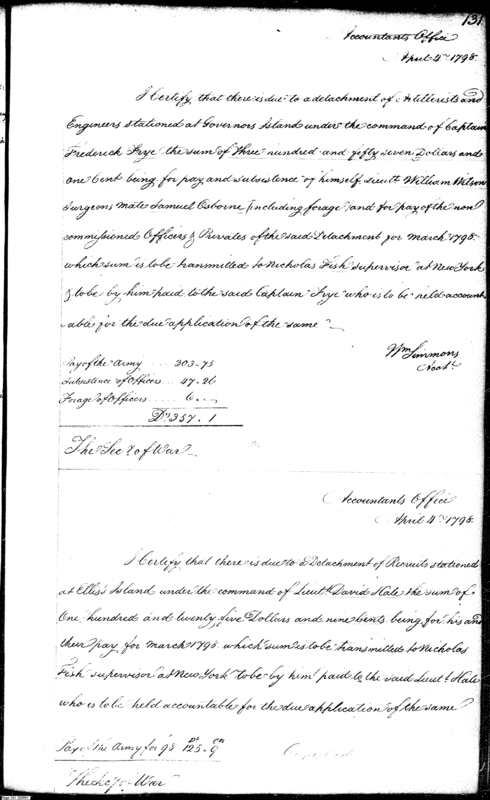 131
Accountants Office
April 4th 1798.
I Certify that there is due to a detachment of Artillerists and
Engineers stationed at Governors Island under the command of Captain
Frederick Frye the sum of Three hundred and fifty seven Dollars and
One Cent being for pay and subsistence of himself Lieutt William Wilson
Surgeons mate Samuel Osborne (including forage) and for pay of the non
commissioned Officers & Privates of the said Detachment for March 1798.
which sum is to be transmitted to Nicholas Fish supervisor at New York
& to be by him paid to the said Captain Frye who is to be held account
able for the due application of the same
Wm Simmons
Acct.
Pay of the Army .... 303.75
Subsistence of Officers ... 47.26
Forage of Officers ..... 6..
Drs 357.1
The Secy of War
Accountants Office
April 4th 1798.
I Certify that there is due to a Detachment of Recruits stationed
at Ellis's Island under the command of Lieutt David Hale the sum of
One hundred and twenty five Dollars and nine Cents being for his and
their pay for March 1798 which sum is to be transmitted to Nicholas
Fish supervisor at New York to be by him paid to the said Lieutt Hale
who is to be held accountable for the due application of the same
Pay of the Army for 98 Ds 125. Cts 9
The Secy of War